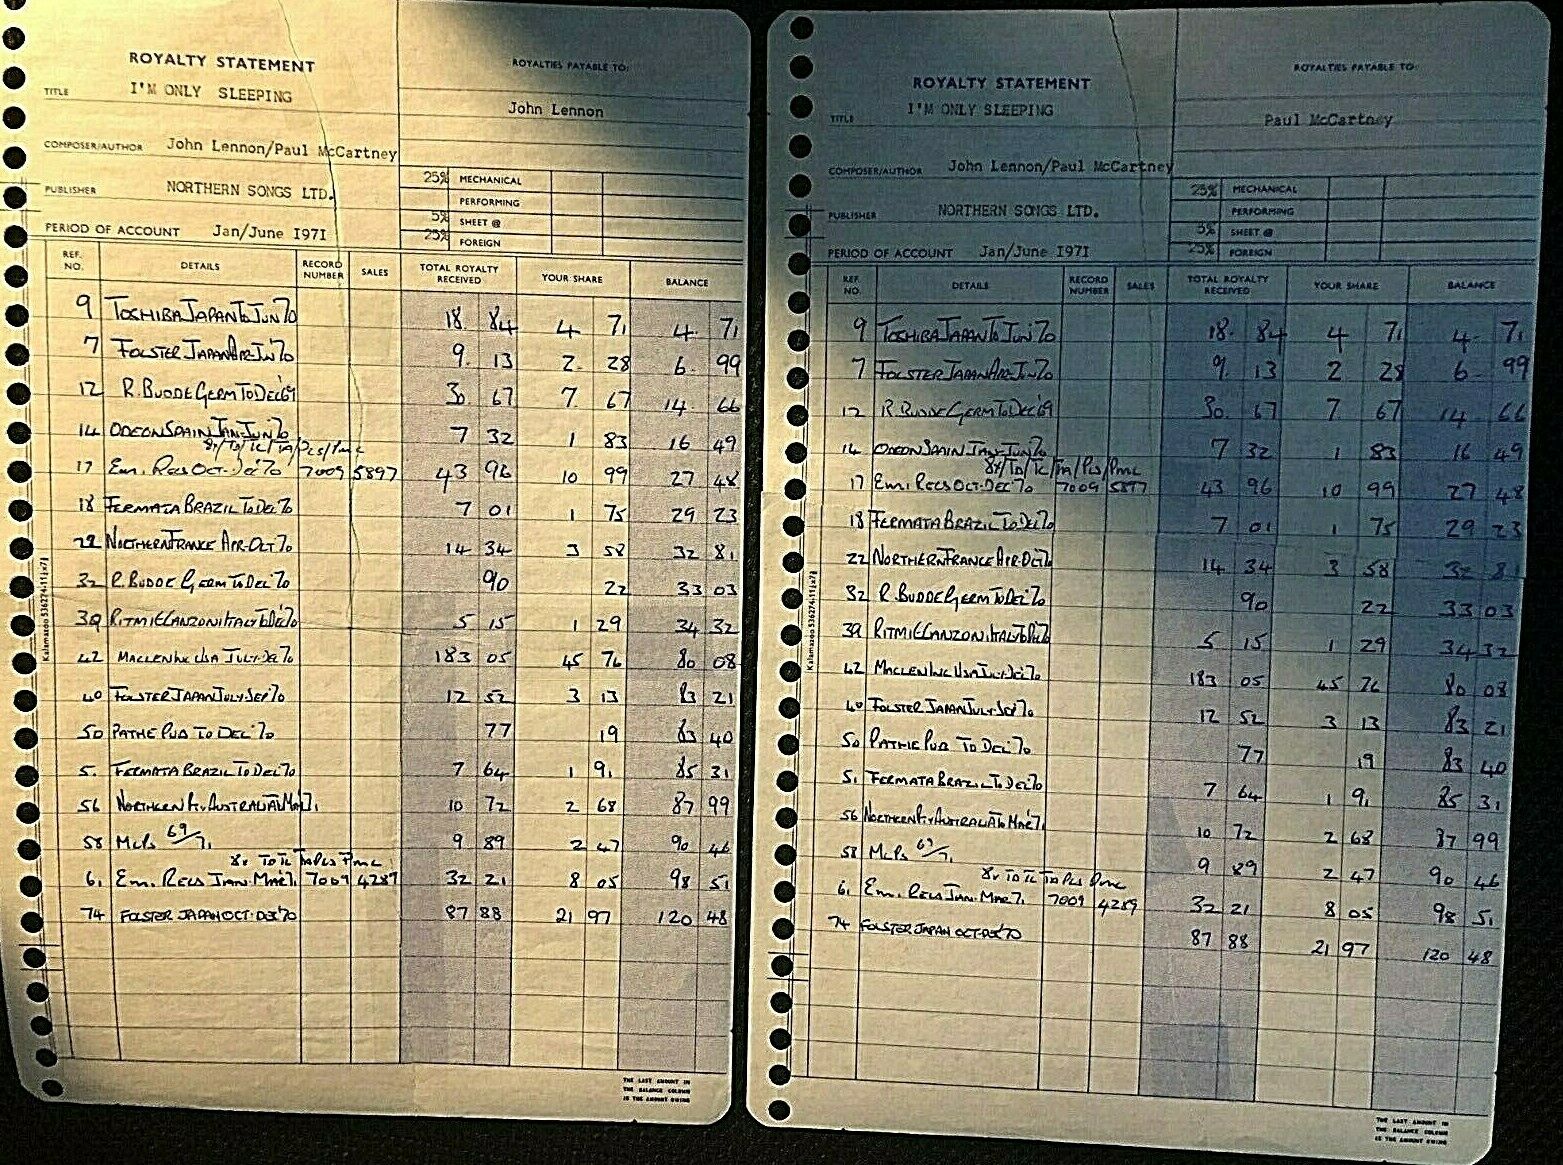 ROYALTY STATEMENT
ROYALTIES PAYABLE TO:
TITLE I'M ONLY SLEEPING
John Lennon
COMPOSER/AUTHOR John Lennon/Paul McCartney
PUBLISHER NORTHERN SONGS LTD.
25% MECHANICAL
PERFORMING
5% SHEET @
25% FOREIGN
PERIOD OF ACCOUNT Jan/June 1971
REF. NO. DETAILS RECORD NUMBER SALES TOTAL ROYALTY RECEIVED YOUR SHARE BALANCE
9 TOSHIBA JAPAN TO JUN '70 18. 84 4 71 4. 71
7 FOLSTER JAPAN APR-JUN '70 9. 13 2. 28 6. 99
12 R. BUDDE GERM TO DEC '69 30 67 7. 67 14. 66
14 ODEON SPAIN JAN-JUN '70 7 32 1 83 16 49
8x/TD/TC/TA/PLS/PMC
17 EMI RECS OCT-DEC '70 7009 5897 43 96 10 99 27 48
18 FERMATA BRAZIL TO DEC '70 7 01 1 75 29 23
22 NORTHERN FRANCE APR-OCT '70 14 34 3 58 32 81
32 R. BUDDE GERM TO DEC '70 90 22 33 03
39 RITMI E CANZONI ITALY TO DEC '70 5 15 1 29 34 32
42 MACLEN INC USA JULY-DEC '70 183 05 45 76 80 08
40 FOLSTER JAPAN JULY-SEP '70 12 52 3 13 83 21
50 PATHE PUB TO DEC '70 77 19 83 40
51 FERMATA BRAZIL TO DEC '70 7 64 1 91 85 31
56 NORTHERN AUSTRALIA TO MAR '71 10 72 2 68 87 99
58 MCPS 69/71 9 89 2 47 90 46
8x TD TC TA PLS PMC
61 EMI RECS JAN-MAR '71 7009 4289 32 21 8 05 98 51
74 FOLSTER JAPAN OCT-DEC '70 87 88 21 97 120 48
Kalamazoo 536274-11j x7j
THE LAST AMOUNT IN
THE BALANCE COLUMN
IS THE AMOUNT OWING
ROYALTY STATEMENT
ROYALTIES PAYABLE TO:
TITLE I'M ONLY SLEEPING
Paul McCartney
COMPOSER/AUTHOR John Lennon/Paul McCartney
PUBLISHER NORTHERN SONGS LTD.
25% MECHANICAL
PERFORMING
5% SHEET @
25% FOREIGN
PERIOD OF ACCOUNT Jan/June 1971
REF. NO. DETAILS RECORD NUMBER SALES TOTAL ROYALTY RECEIVED YOUR SHARE BALANCE
9 TOSHIBA JAPAN TO JUN '70 18. 84 4 71 4. 71
7 FOLSTER JAPAN APR-JUN '70 9. 13 2 28 6. 99
12 R BUDDE GERM TO DEC '69 30. 67 7 67 14 66
14 ODEON SPAIN JAN-JUN '70 7 32 1 83 16 49
8x/TD/TC/TA/PLS/PMC
17 EMI RECS OCT-DEC '70 7009 5897 43 96 10 99 27 48
18 FERMATA BRAZIL TO DEC '70 7 01 1 75 29 23
22 NORTHERN FRANCE APR-OCT '70 14 34 3 58 32 81
32 R. BUDDE GERM TO DEC '70 90 22 33 03
39 RITMI E CANZONI ITALY TO DEC '70 5 15 1 29 34 32
42 MACLEN INC USA JULY-DEC '70 183 05 45 76 80 08
40 FOLSTER JAPAN JULY-SEP '70 12 52 3 13 83 21
50 PATHE PUB TO DEC '70 77 19 83 40
51 FERMATA BRAZIL TO DEC '70 7 64 1 91 85 31
56 NORTHERN AUSTRALIA TO MAR '71 10 72 2 68 87 99
58 MCPS 69/71 9 89 2 47 90 46
8x TD TC TA PLS PMC
61 EMI RECS JAN-MAR '71 7009 4289 32 21 8 05 98 51
74 FOLSTER JAPAN OCT-DEC '70 87 88 21 97 120 48
Kalamazoo 536274-11j x7j
THE LAST AMOUNT IN
THE BALANCE COLUMN
IS THE AMOUNT OWING